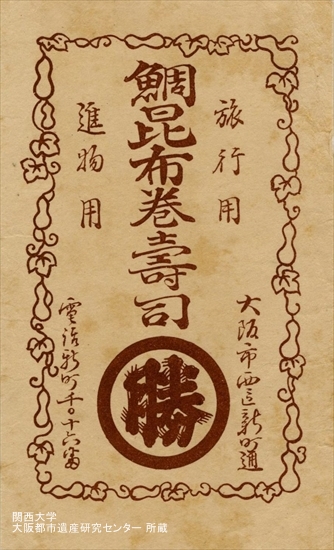 旅行用
鯛昆布巻壽司
進物用
勝
大阪市西区新町通
電話新町千〇十六番
関西大学
大阪都市遺産研究センター 所蔵